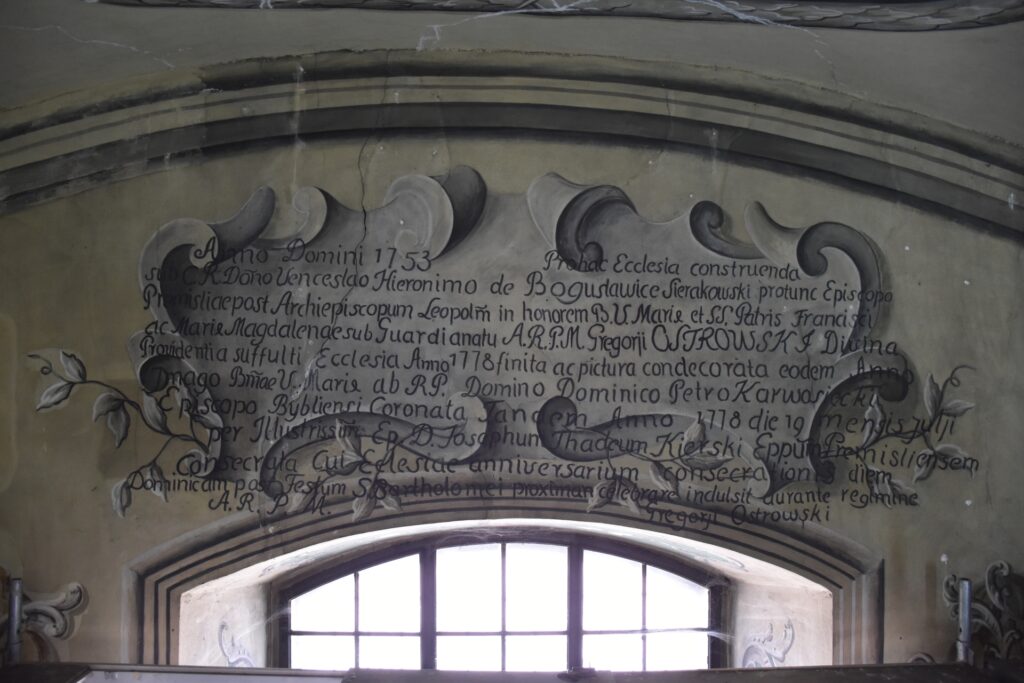 Anno Domini 1753 Prohac Ecclesia construenda
sub C.R. Dōno Venceslao Hieronimo de Bogusławice Sierakowski protunc Episcopo
Premisliaepost Archiepiscopum Leopolm̄ in honorem B.V. Marie et S.S. Patris Francisci
ac Marie Magdalenae sub Guardianatu A.R.P.M. Gregorii OSTROWSKI Divina
Providentia suffulti Ecclesia Anno 1778 finita ac pictura condecorata eodem Anno
Imago Bm̄ae V. Marie ab R.P. Domino Dominico Petro Karwosiecki
Episcopo Byblienci Coronata Tandem Anno 1778 die 19 mensis julji
per Illustrissim Ep. D. Josephum Thadeum Kierski Eppum Premisliensem
Consecrata Cui Eclesiae anniversarium consecrationis diem
Dominicam post Festum S. Bartholomei proximan celebrare indulsit durante regimine
A. R. P. M. Gregorji Ostrowski